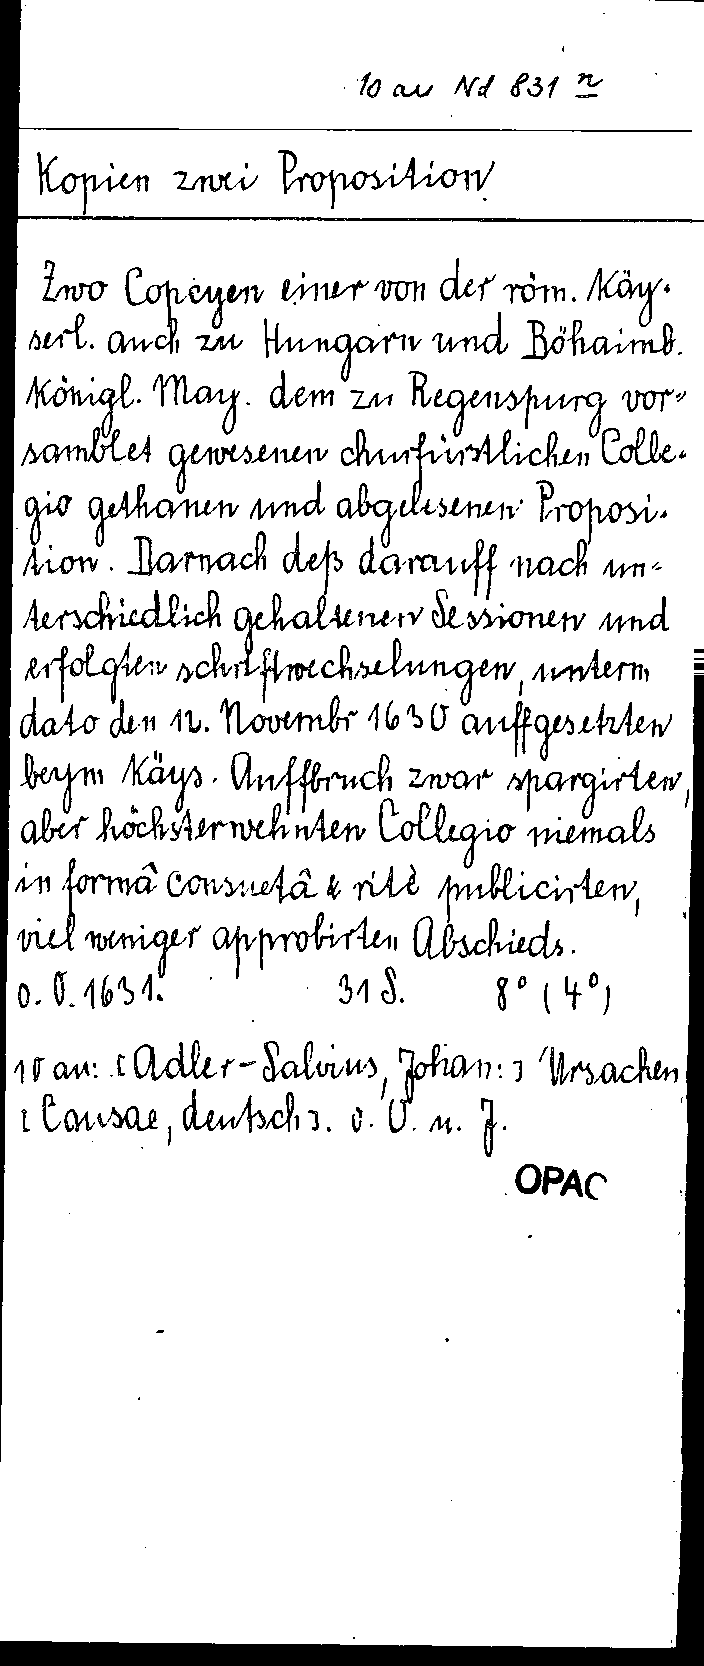 10 an Nd 831 n
Kopien zwei Proposition
Zwo Copeyen einer von der röm. Käy-
serl. auch zu Hungarn und Böhaimb.
Königl. May. dem zu Regenspurg vor-
samblet gewesenen churfürstlichen Colle-
gio gethanen und abgelesenen Proposi-
tion. Darnach deß darauff nach un-
terschiedlich gehaltenen Sessionen und
erfolgten schriftwechselungen, unterm
dato den 12. Novembr 1630 auffgesetzten
beym Käys. Auffbruch zwar spargirten,
aber höchsterwehnten Collegio niemals
in formâ consuetâ & ritè publicirten,
viel weniger approbirten Abschieds.
o. O. 1631. 31 S. 8° (4°)
10 an: [Adler-Salvius, Johan:] Ursachen
[Causae, deutsch]. o. O. u. J.
OPAC